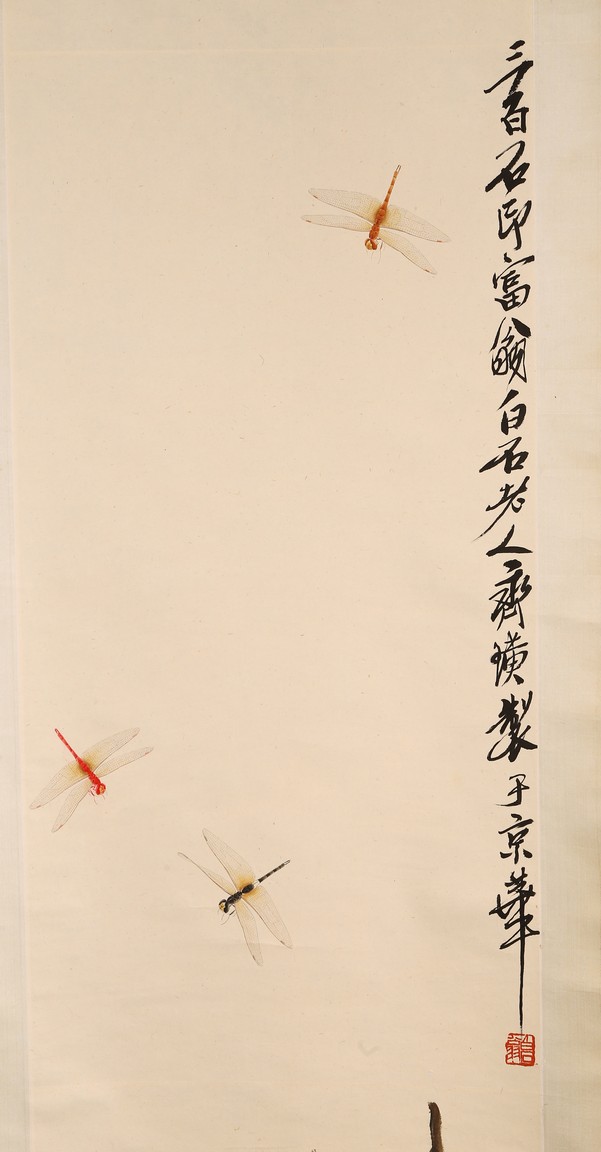 三百石印富翁白石老人齊璜製于京華